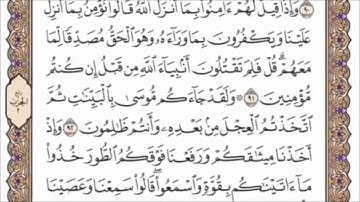 وَإِذَا قِيلَ لَهُمْ ءَامِنُوا۟ بِمَآ أَنزَلَ ٱللَّهُ قَالُوا۟ نُؤْمِنُ بِمَآ أُنزِلَ
عَلَيْنَا وَيَكْفُرُونَ بِمَا وَرَآءَهُۥ وَهُوَ ٱلْحَقُّ مُصَدِّقًا لِّمَا
مَعَهُمْ ۗ قُلْ فَلِمَ تَقْتُلُونَ أَنۢبِيَآءَ ٱللَّهِ مِن قَبْلُ إِن كُنتُم
مُّؤْمِنِينَ ٩١ وَلَقَدْ جَآءَكُم مُّوسَىٰ بِٱلْبَيِّنَٰتِ ثُمَّ
ٱتَّخَذْتُمُ ٱلْعِجْلَ مِنۢ بَعْدِهِۦ وَأَنتُمْ ظَٰلِمُونَ ٩٢ وَإِذْ
أَخَذْنَا مِيثَٰقَكُمْ وَرَفَعْنَا فَوْقَكُمُ ٱلطُّورَ خُذُوا۟
مَآ ءَاتَيْنَٰكُم بِقُوَّةٍ وَٱسْمَعُوا۟ ۖ قَالُوا۟ سَمِعْنَا وَعَصَيْنَا